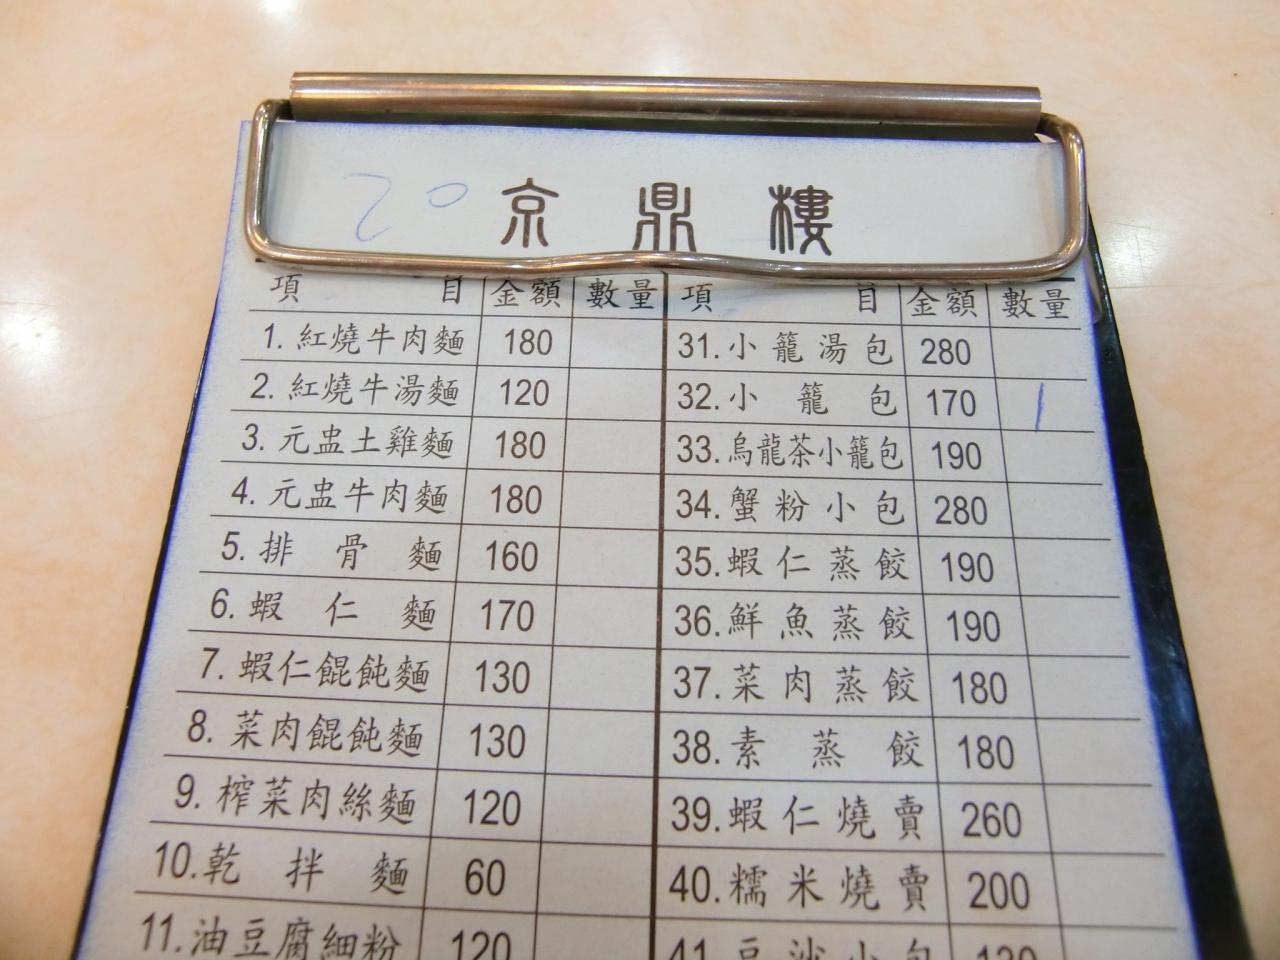 20 京鼎樓
項 目 金額 數量 項 目 金額 數量
1. 紅燒牛肉麵 180 31. 小籠湯包 280
2. 紅燒牛湯麵 120 32. 小籠包 170 1
3. 元盅土雞麵 180 33. 烏龍茶小籠包 190
4. 元盅牛肉麵 180 34. 蟹粉小包 280
5. 排骨麵 160 35. 蝦仁蒸餃 190
6. 蝦仁麵 170 36. 鮮魚蒸餃 190
7. 蝦仁餛飩麵 130 37. 菜肉蒸餃 180
8. 菜肉餛飩麵 130 38. 素蒸餃 180
9. 榨菜肉絲麵 120 39. 蝦仁燒賣 260
10. 乾拌麵 60 40. 糯米燒賣 200
11. 油豆腐細粉 120 41. 豆沙小包 120